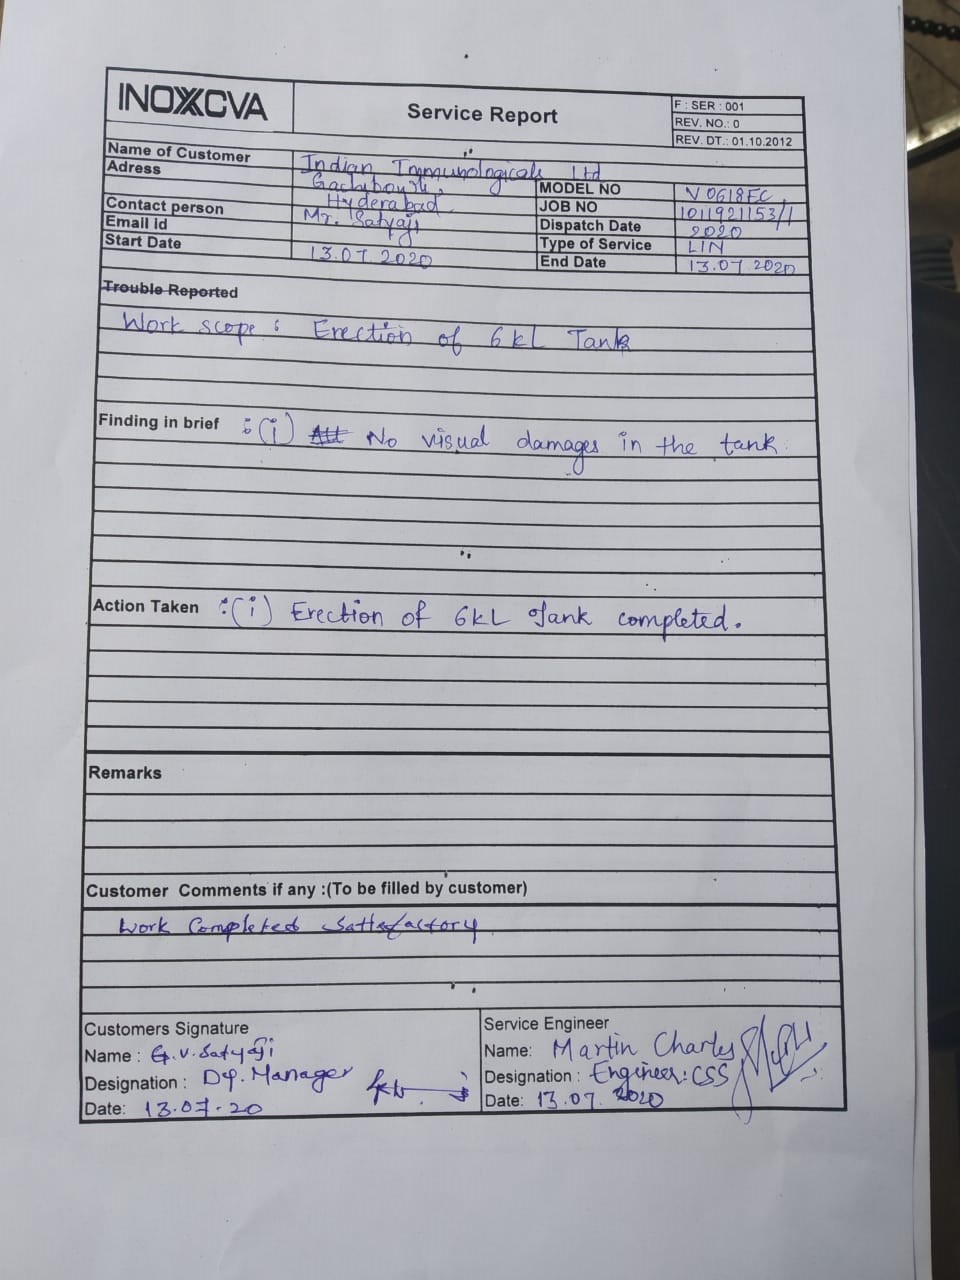 INOXCVA
Service Report
F : SER : 001
REV. NO.: 0
REV. DT.: 01.10.2012
Name of Customer Indian Immunologicals Ltd
Adress Gachibouli,
Hyderabad
MODEL NO V0618EC
JOB NO 1011921153/1
Contact person Mr. Satyaji
Dispatch Date 2020
Email id
Type of Service LIN
Start Date 13.07.2020
End Date 13.07.2020
Trouble Reported
Work scope : Erection of 6 kL Tank
Finding in brief : (i) All No visual damages in the tank.
Action Taken : (i) Erection of 6kL Tank completed.
Remarks
Customer Comments if any :(To be filled by customer)
Work Completed Sattefactory
Customers Signature
Name : G.V. Satyaji
Designation : Dy. Manager
Date: 13.07.20
Service Engineer
Name: Martin Charles
Designation : Engineer: CSS
Date: 13.07.2020